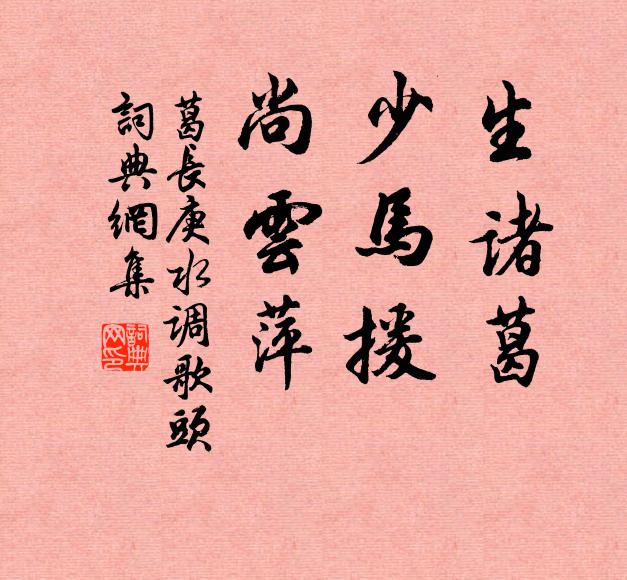 生諸葛
少馬援
尚雲萍
葛長庚水调歌頭
詞典網集
詞典网印